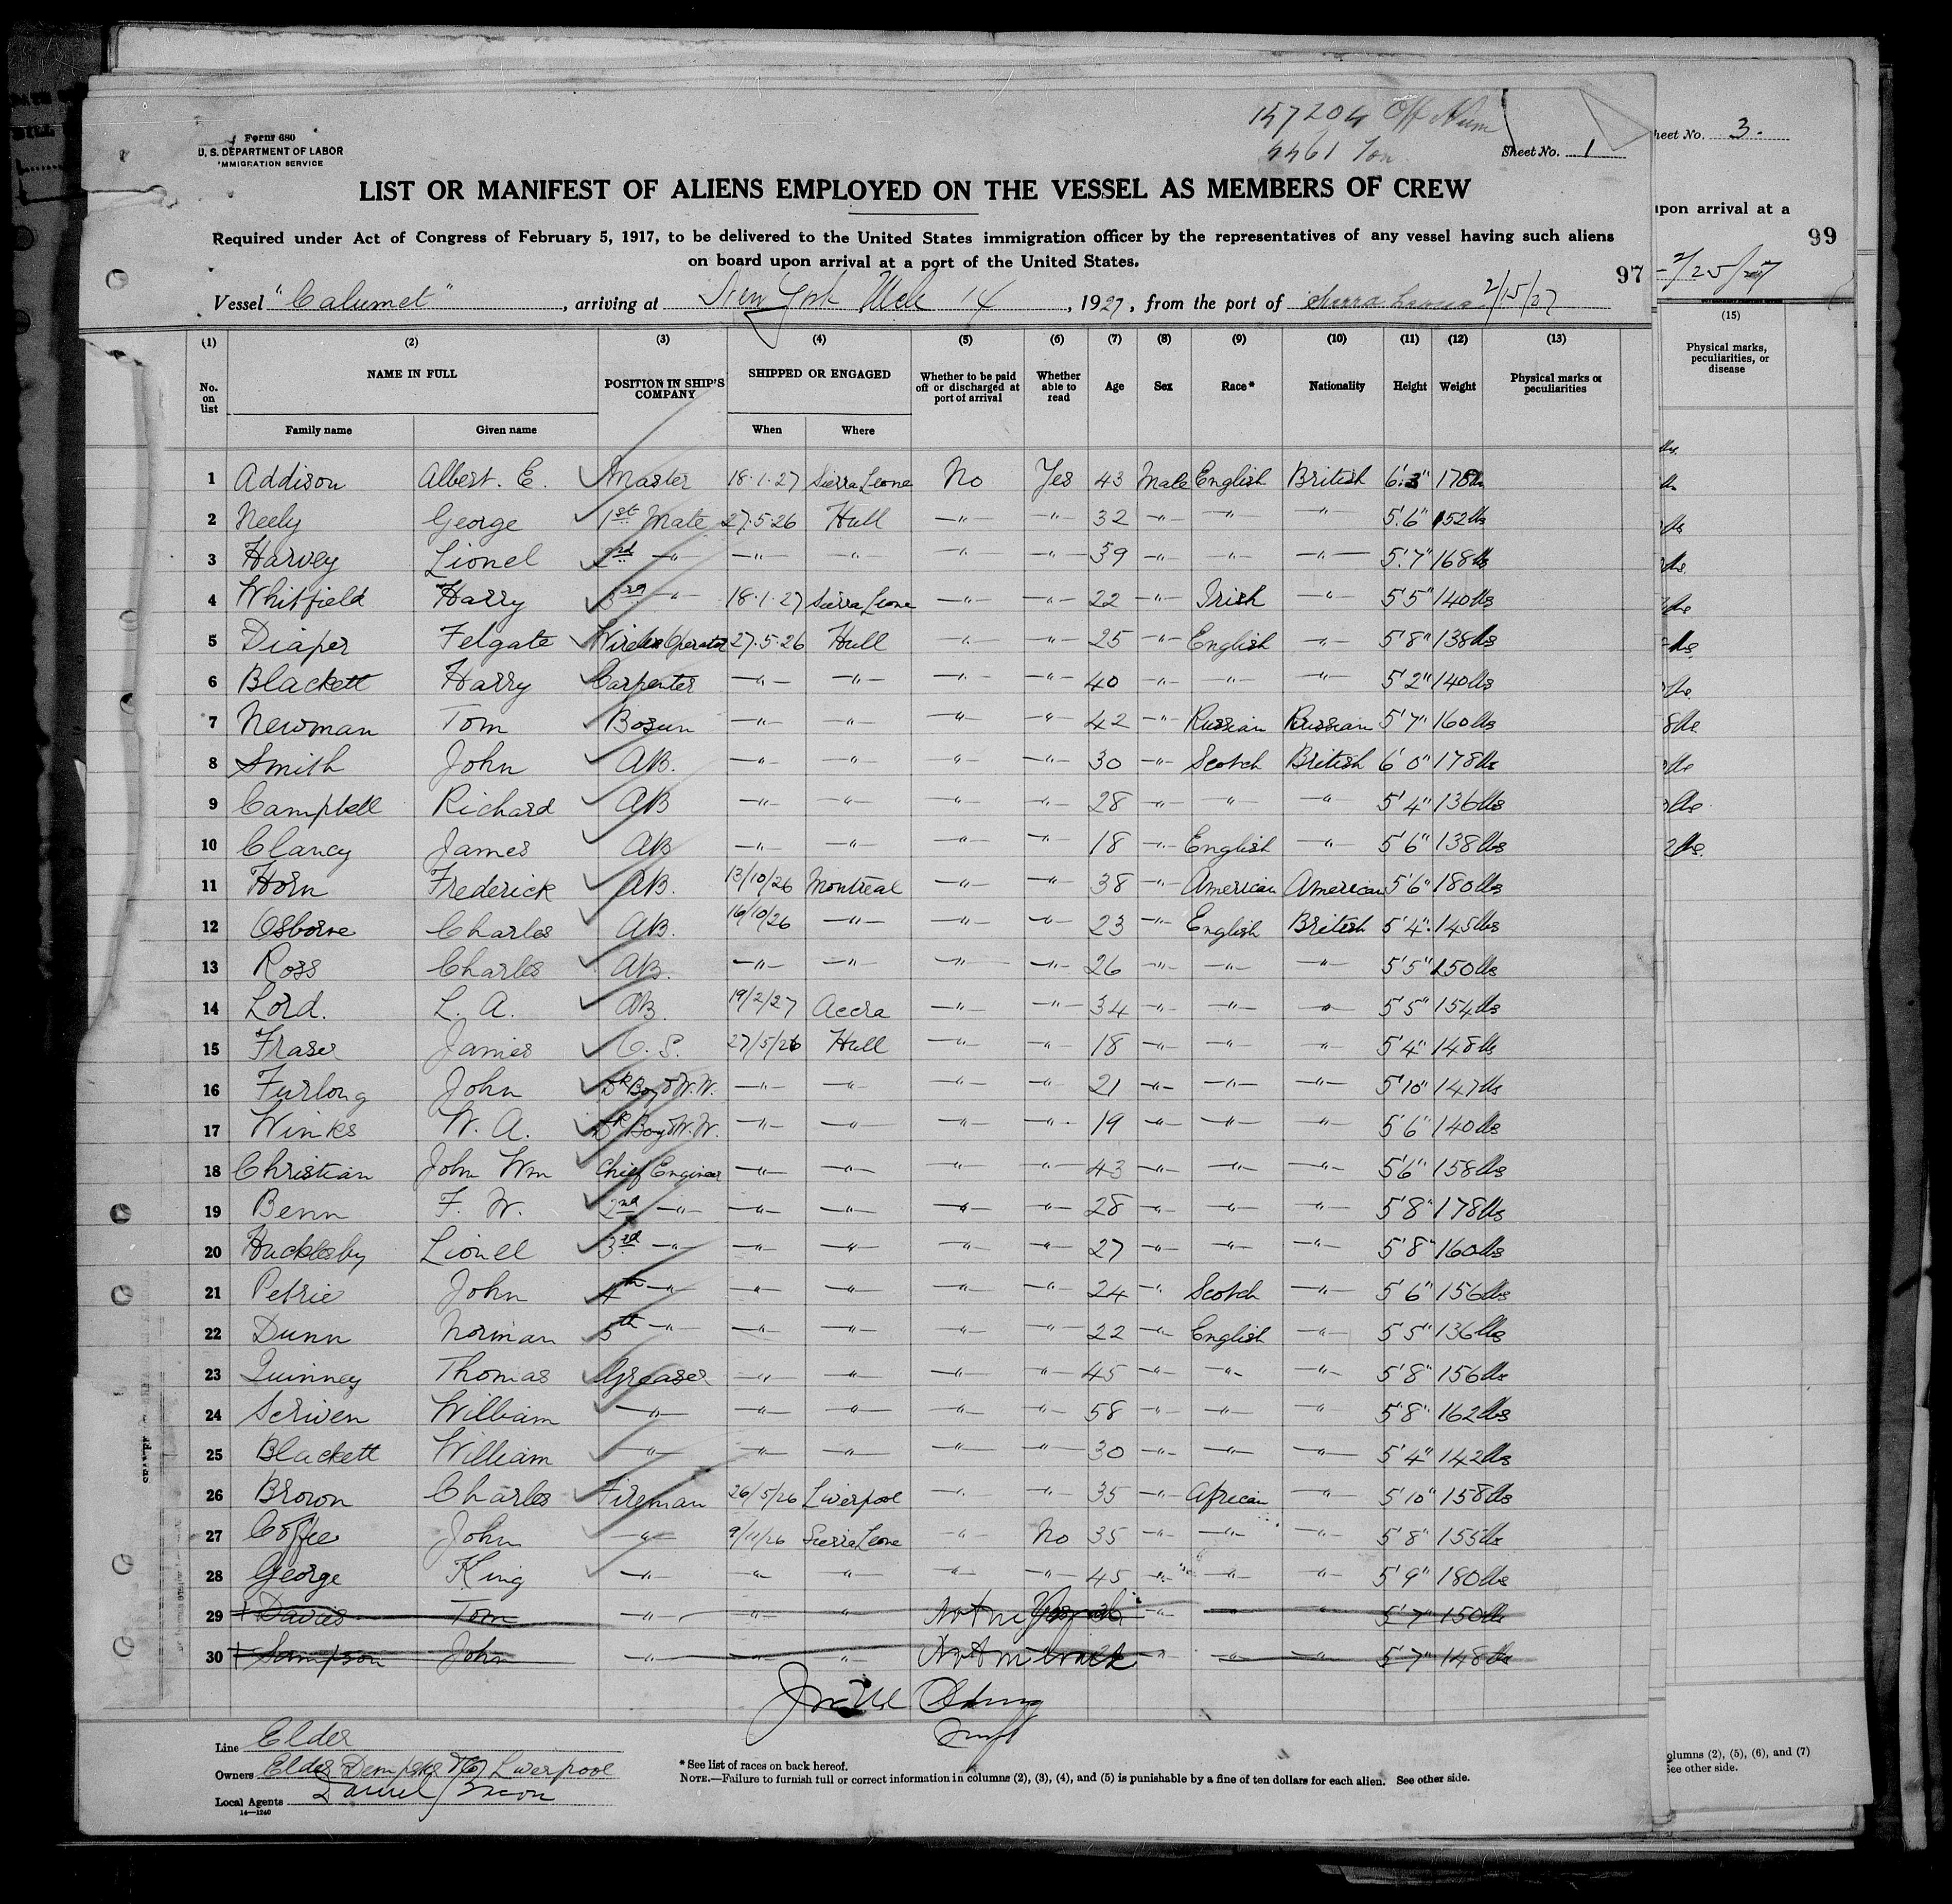 147204 Off Num
4461 Ton
Form 680
U. S. DEPARTMENT OF LABOR
IMMIGRATION SERVICE
Sheet No. 1
LIST OR MANIFEST OF ALIENS EMPLOYED ON THE VESSEL AS MEMBERS OF CREW
Required under Act of Congress of February 5, 1917, to be delivered to the United States immigration officer by the representatives of any vessel having such aliens
on board upon arrival at a port of the United States.
97
Vessel "Calumet", arriving at New York Mch 14, 1927, from the port of Sierra Leone 2/15/27
(1) (2) (3) (4) (5) (6) (7) (8) (9) (10) (11) (12) (13)
No. on list NAME IN FULL Family name Given name POSITION IN SHIP'S COMPANY SHIPPED OR ENGAGED When Where Whether to be paid off or discharged at port of arrival Whether able to read Age Sex Race* Nationality Height Weight Physical marks or peculiarities
1 Addison Albert. E. Master 18.1.27 Sierra Leone No Yes 43 Male English British 6'.3" 178lbs
2 Neely George 1st Mate 27.5.26 Hull —"— —"— 32 —"— —"— —"— 5'.6" 152lbs
3 Harvey Lionel 2nd —"— —"— —"— —"— —"— 39 —"— —"— —"— 5'.7" 168lbs
4 Whitfield Harry 3rd —"— 18.1.27 Sierra Leone —"— —"— 22 —"— Irish —"— 5'5" 140lbs
5 Diaper Felgate Wireless Operator 27.5.26 Hull —"— —"— 25 —"— English —"— 5'8" 138lbs
6 Blackett Harry Carpenter —"— —"— —"— —"— 40 —"— —"— —"— 5'2" 140lbs
7 Newman Tom Bosun —"— —"— —"— —"— 42 —"— Russian Russian 5'7" 160lbs
8 Smith John AB. —"— —"— —"— —"— 30 —"— Scotch British 6'0" 178lbs
9 Campbell Richard AB —"— —"— —"— —"— 28 —"— —"— —"— 5'4" 136lbs
10 Clancy James AB —"— —"— —"— —"— 18 —"— English —"— 5'6" 138lbs
11 Horn Frederick AB. 13/10/26 Montreal —"— —"— 38 —"— American American 5'6" 180lbs
12 Osborne Charles AB. 16/10/26 —"— —"— —"— 23 —"— English British 5'4" 145lbs
13 Ross Charles AB. —"— —"— —"— —"— 26 —"— —"— —"— 5'5" 150lbs
14 Lord. L. A. AB. 19/2/27 Accra —"— —"— 34 —"— —"— —"— 5'5" 154lbs
15 Fraser James O. S. 27/5/26 Hull —"— —"— 18 —"— —"— —"— 5'4" 148lbs
16 Furlong John Dk Boy & W.W. —"— —"— —"— —"— 21 —"— —"— —"— 5'10" 147lbs
17 Winks W. A. Dk Boy & W.W. —"— —"— —"— —"— 19 —"— —"— —"— 5'6" 140lbs
18 Christian John Wm Chief Engineer —"— —"— —"— —"— 43 —"— —"— —"— 5'6" 158lbs
19 Benn F. W. 2nd —"— —"— —"— —"— —"— 28 —"— —"— —"— 5'8" 178lbs
20 Hucklesby Lionel 3rd —"— —"— —"— —"— —"— 27 —"— —"— —"— 5'8" 160lbs
21 Petrie John 4th —"— —"— —"— —"— —"— 24 —"— Scotch —"— 5'6" 156lbs
22 Dunn Norman 5th —"— —"— —"— —"— —"— 22 —"— English —"— 5'5" 136lbs
23 Quinney Thomas Greaser —"— —"— —"— —"— 45 —"— —"— —"— 5'8" 156lbs
24 Scriven William —"— —"— —"— —"— —"— 58 —"— —"— —"— 5'8" 162lbs
25 Blackett William —"— —"— —"— —"— —"— 30 —"— —"— —"— 5'4" 142lbs
26 Brown Charles Fireman 26/5/26 Liverpool —"— —"— 35 —"— African —"— 5'10" 158lbs
27 Coffee John —"— 9/11/26 Sierra Leone —"— No 35 —"— —"— —"— 5'8" 155lbs
28 George King —"— —"— —"— —"— —"— 45 —"— —"— —"— 5'9" 180lbs
29 Davies Tom —"— —"— —"— —"— —"— 5'7" 150lbs
30 Sampson John —"— —"— —"— —"— —"— —"— 5'7" 148lbs
Line Elder
Owners Elder Dempster & Co Liverpool
Local Agents Daniel Bacon
14—1240
* See list of races on back hereof.
NOTE.—Failure to furnish full or correct information in columns (2), (3), (4), and (5) is punishable by a fine of ten dollars for each alien. See other side.
heet No. 3.
upon arrival at a
99
2/25/27
(15)
Physical marks, peculiarities, or disease
olumns (2), (5), (6), and (7)
See other side.